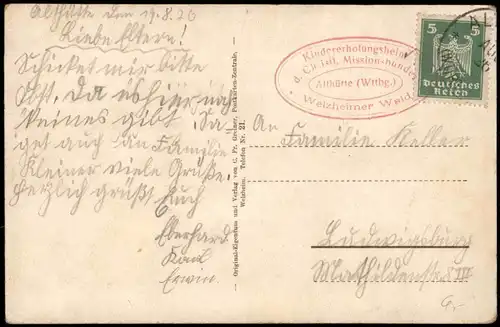 Althütte den 19.8.26
Liebe Eltern!
Schicket mir bitte
Obst. Da es hier
keines gibt. Sa-
get auch der Familie
Kleiner viele Grüße.
Herzlich grüßt Euch
Eberhard
Karl
Erwin.
Original-Eigentum und Verlag von C. Fr. Greiner, Postkarten-Zentrale,
Welzheim. Telefon Nr. 21.
Kindererholungsheim
d. Christl. Mission
Althütte (Wttbg.)
Welzheimer Wald
5 5
Deutsches
Reich
An Familie Keller
Ludwigsburg
Mathildenstr. III